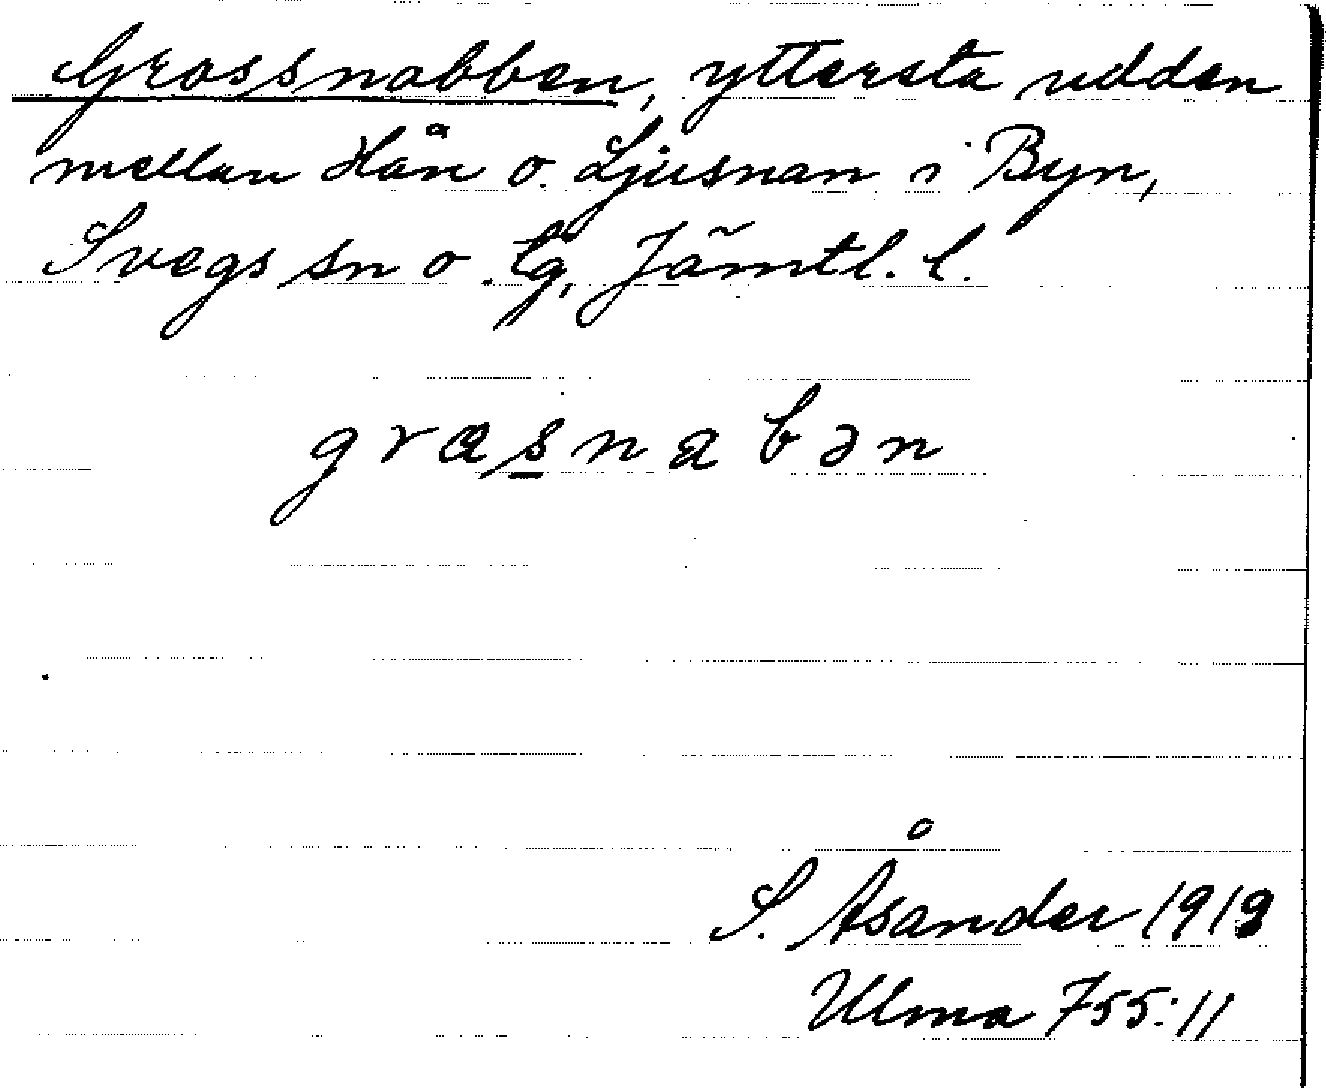 Grossnabben, yttersta udden
mellan Hån o. Ljusnan i Byn,
Svegs sn o. tg, Jämtl. l.
græsnabən
S. Åsander 1919
Ulma 755:11